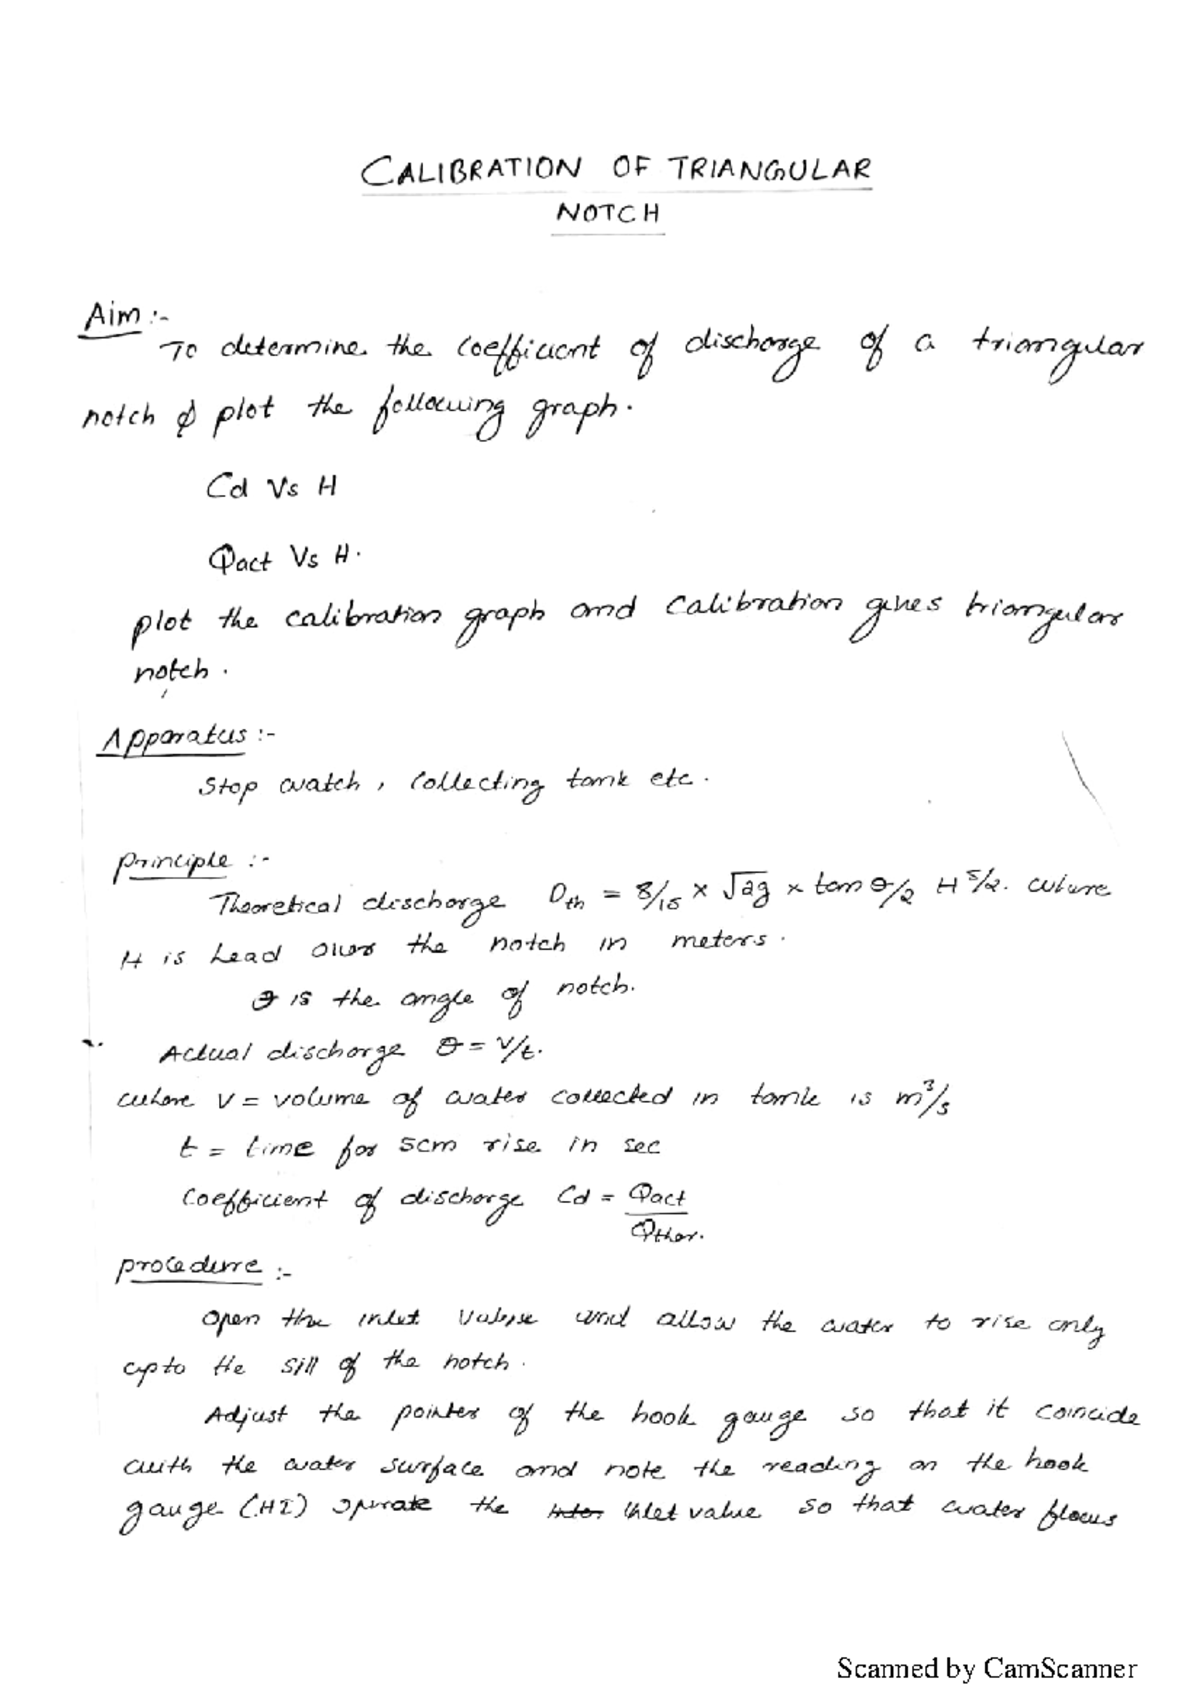 CALIBRATION OF TRIANGULAR
NOTCH
Aim :-
To determine the coefficient of discharge of a triangular
notch & plot the following graph.
Cd Vs H
Qact Vs H.
plot the calibration graph and calibration gives triangular
notch.
Apparatus :-
Stop watch, collecting tank etc.
Principle :-
Theoretical discharge Qth = 8/15 × √2g × tan θ/2 H 5/2. where
H is head over the notch in meters.
θ is the angle of notch.
Actual discharge Q = V/t.
where V = volume of water collected in tank is m³/s
t = time for 5cm rise in sec
Coefficient of discharge Cd = Qact
Qther.
procedure :-
Open the inlet valve and allow the water to rise only
upto the sill of the notch.
Adjust the pointer of the hook gauge so that it coincide
with the water surface and note the reading on the hook
gauge (HI) operate the inlet value so that water flows
Scanned by CamScanner